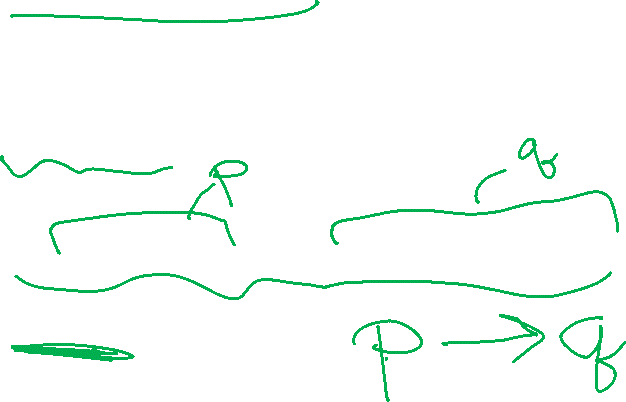 p q
p → q